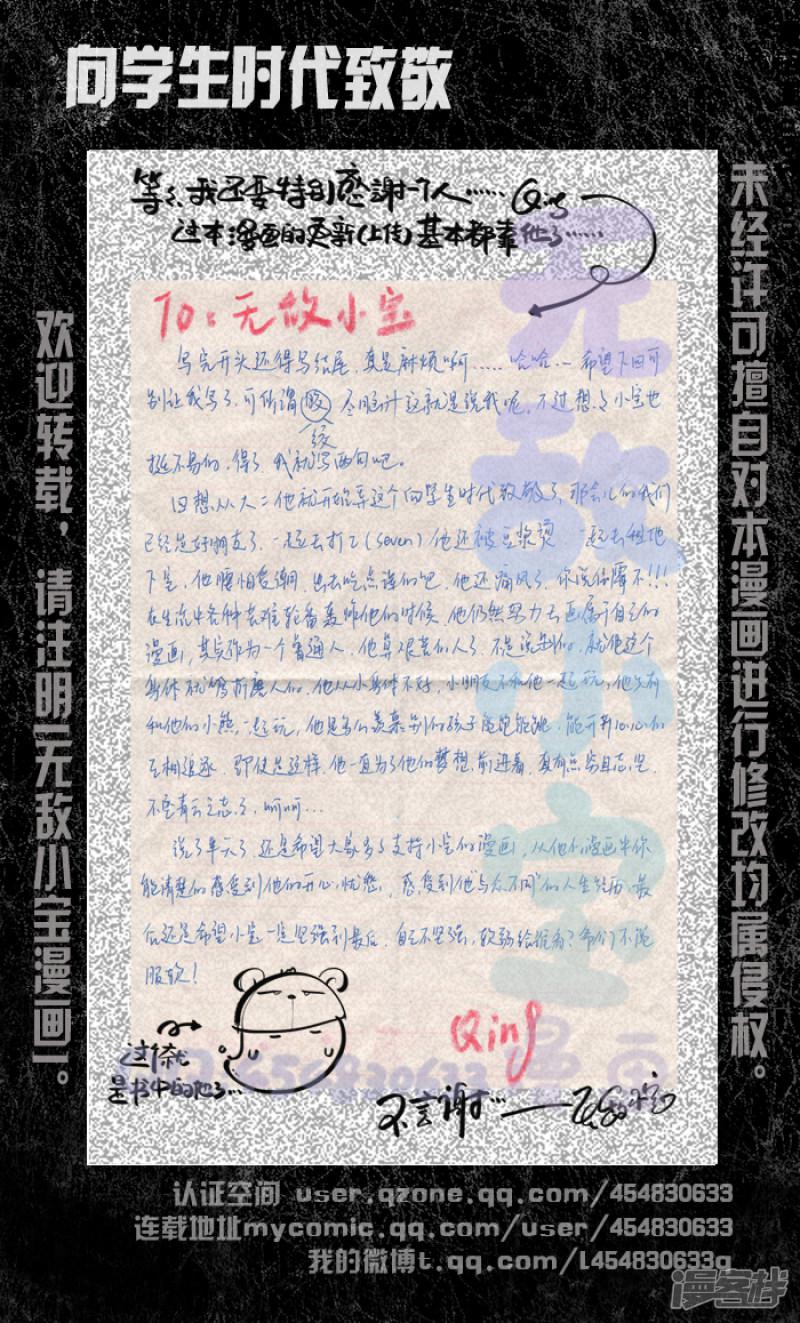 向学生时代致敬
等等,我还要特别感謝一个人……Qing
这本漫画的更新(上传)基本都靠他了……
未经许可擅自对本漫画进行修改均属侵权。
欢迎转载,请注明三无敌小宝漫画三。
To:无敌小宝
写完开头还得写结尾,真是麻烦啊……哈哈…希望下回可
别让我写了,可所谓
尽脑汁这就是说我呢,不过想想小宝也
挺不易的,得了,我就写两句吧。
回想从大二他就开始弄这个向学生时代致敬了,那会儿的我们
已经是好朋友了,一起去打工(seven)他还被豆浆烫,一起去租地
下室,他腰怕受潮,出去吃点海鲜吧,他还痛风了,你说倒霉不!!!
在生活中各种苦难轮番轰炸他的时候,他仍然努力去画属于自己的
漫画,其实作为一个普通人,他算艰苦的人了,不是说别的,就他这个
身体就够折磨人的,他从小身体不好,小朋友不和他一起玩,他只有
和他的小熊一起玩,他是多么羡慕别的孩子能跑能跳,能开开心心的
互相追逐,即使是这样,他一直为了他的梦想前进着,真有点穷且志坚,
不坠青云之志了,呵呵…
说了半天了,还是希望大家多多支持小宝的漫画,从他的漫画中你
能清楚的感受到他的开心,忧愁,感受到他“与众不同”的人生经历,最
后还是希望小宝一定坚强到最后,自己不坚强,软弱给谁看?爷们不说
服软!
Qing
这就是书中的他了…
不言謝…——无敌小宝
无敌小宝漫画
454830633
认证空间 user.qzone.qq.com/454830633
连载地址mycomic.qq.com/user/454830633
我的微博t.qq.com/l454830633q
漫客栈